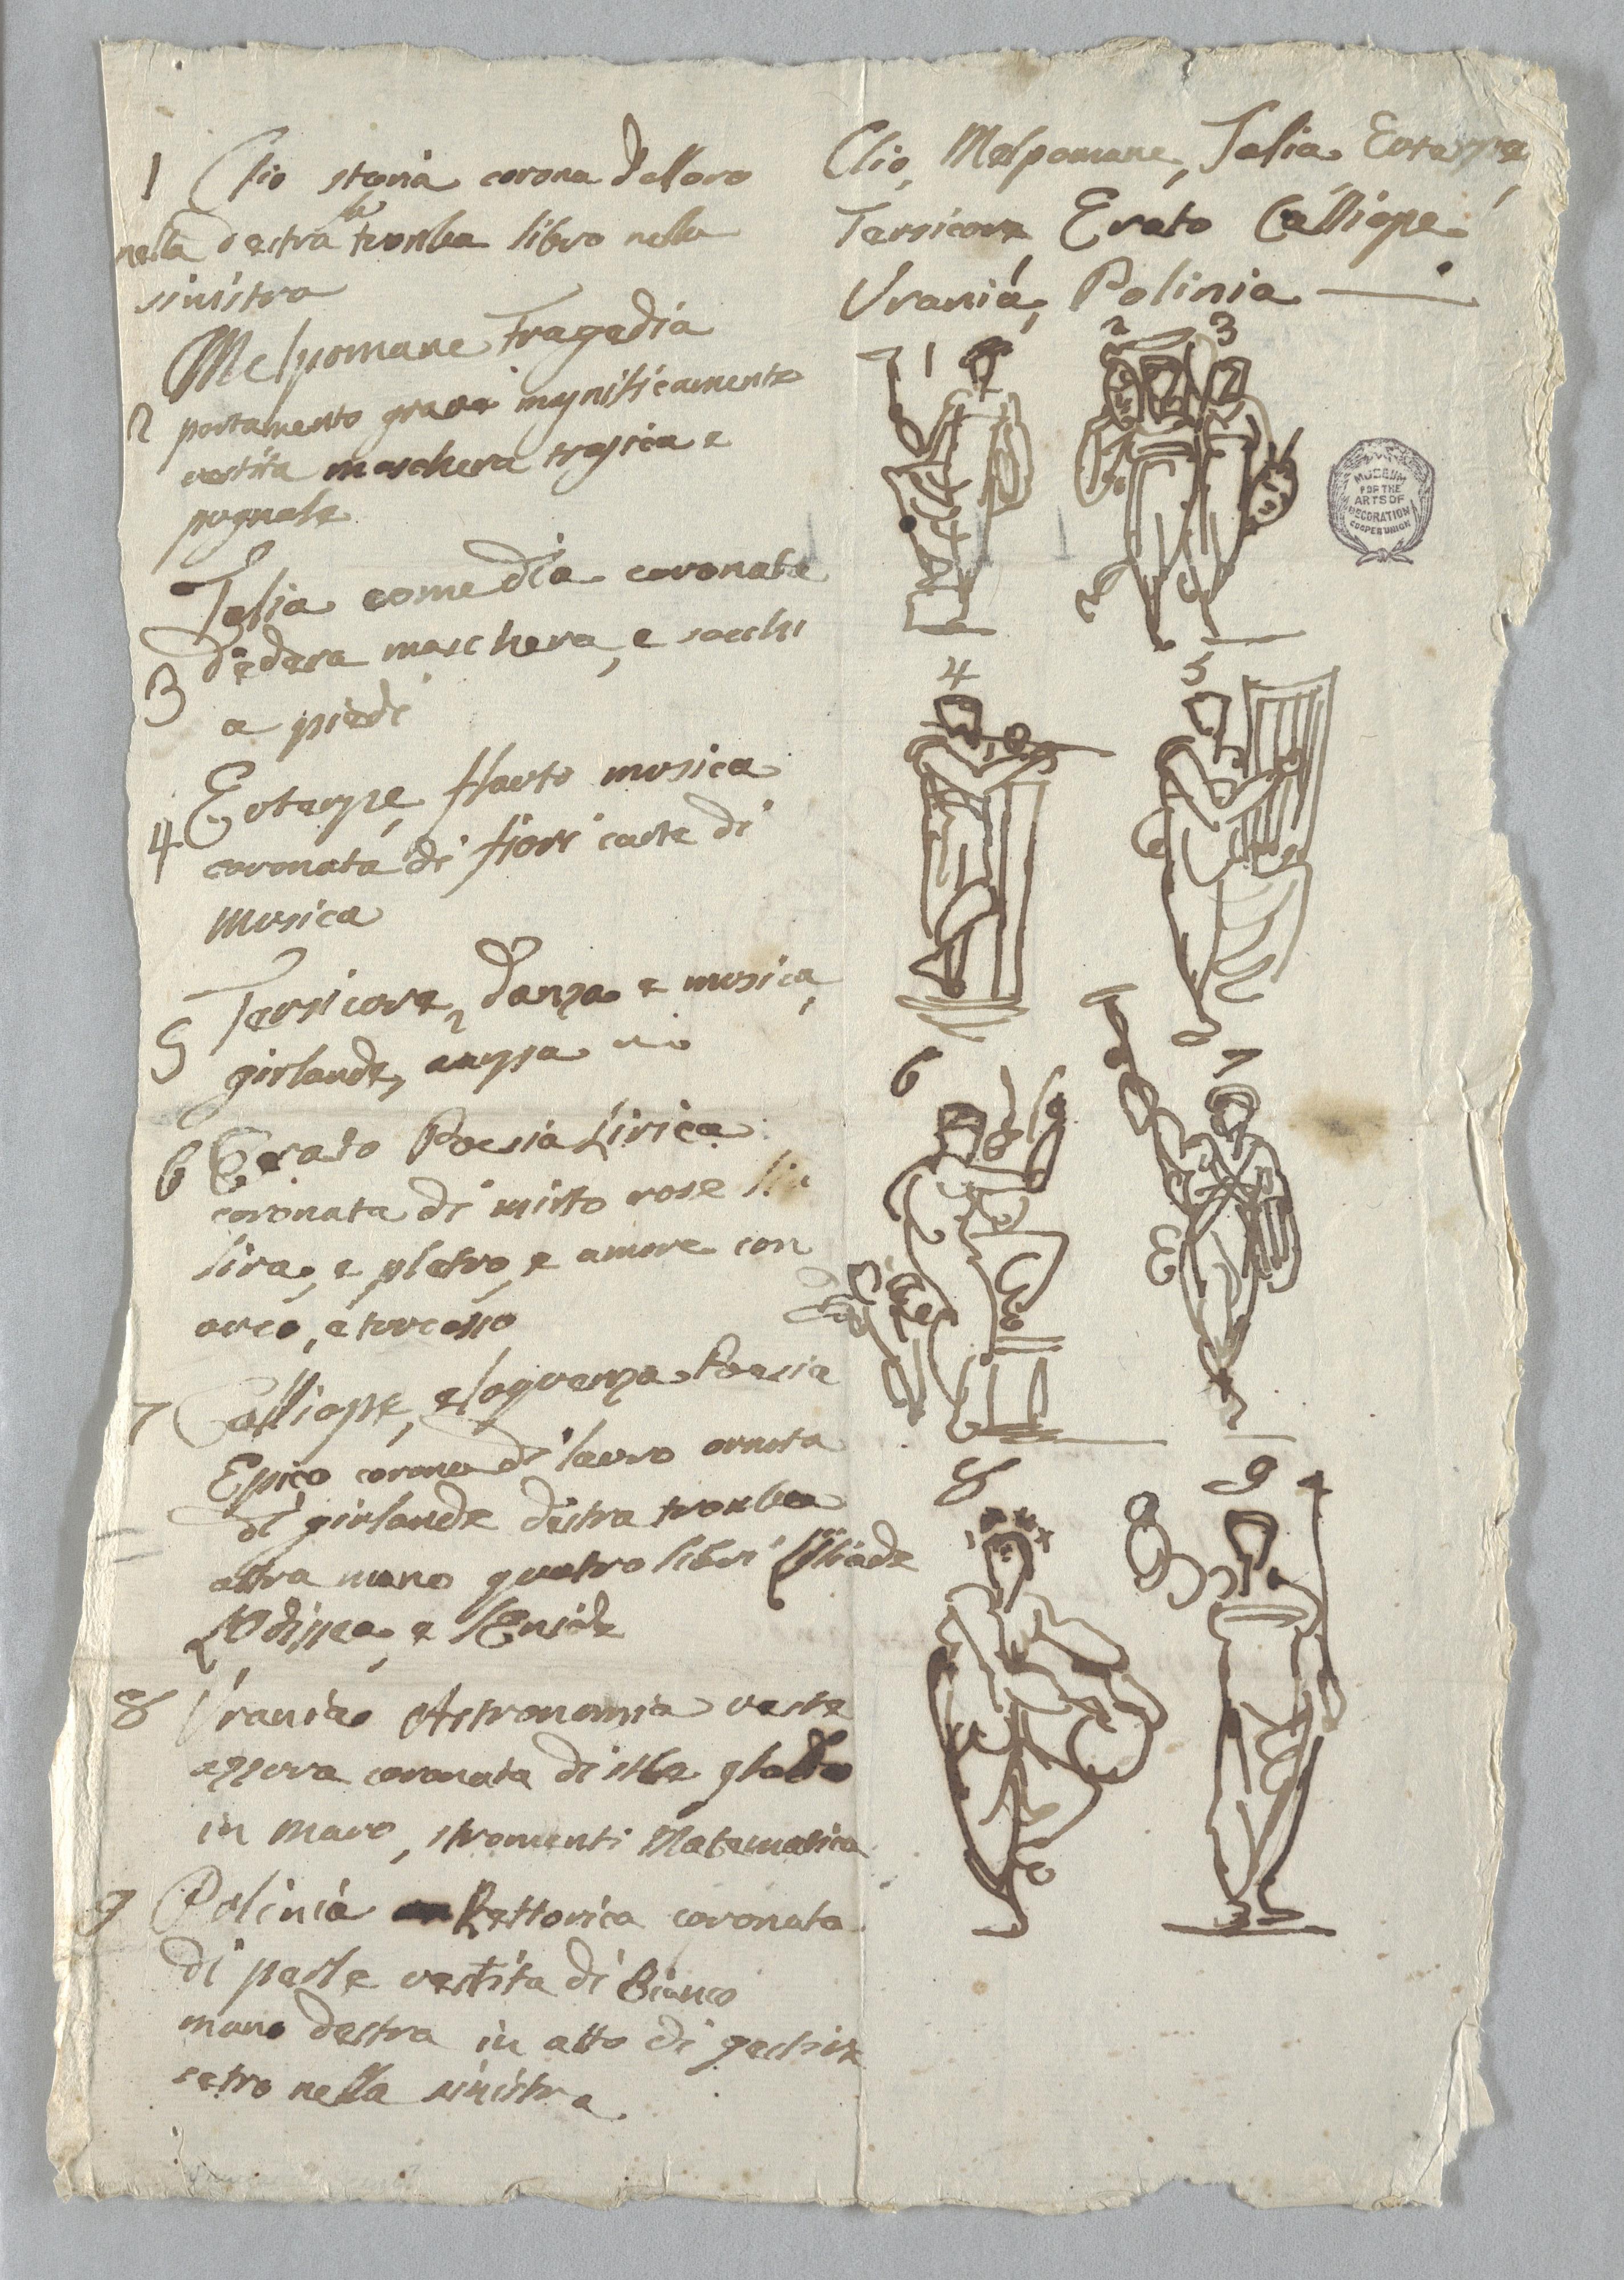 1 Clio storia corona dalloro
nella destra la tromba libro nella
sinistra
Melpomane Tragedia
2 portamento grave magnificamente
vestita maschera tragica e
pugnale
Talia comedia coronata
3 dedera maschera, e socchi
a piedi
4 Euterpe, flauto musica
coronata di fiori carte di
musica
5 Tersicore, danza e musica,
girlande,
6 Erato Poesia Lirica
coronata di mirto rose
lira, e pletro, e amore con
arco, e turcasso
7 Calliope, eloquenza Poesia
Epico corona di lauro ornata
di girlande destra tromba
altra mano quatro libri Iliade
Odissea, e Eneide
8 Urania Astronomia veste
azzura coronata di stle globo
in mano, stromenti Matematica
9 Polinia Rettorica coronata
di perle vestita di Bianco
mano destra in atto di
setro nella sinistra
Clio, Melpomane, Talia, Euterpe,
Tersicore Erato Calliope
Urania, Polinia
1 2 3
4 5
6 7
8 9
MUSEUM
FOR THE
ARTS OF
DECORATION
COOPER UNION